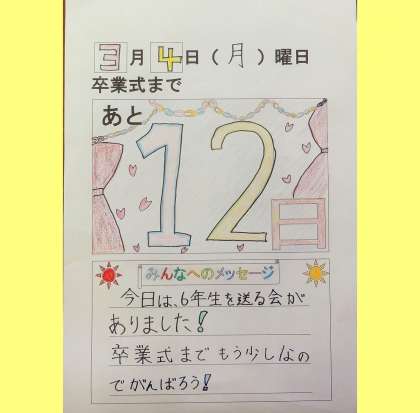 3月4日(月)曜日
卒業式まで
あと
12日
みんなへのメッセージ
今日は、6年生を送る会が
ありました!
卒業式までもう少しなの
でがんばろう!